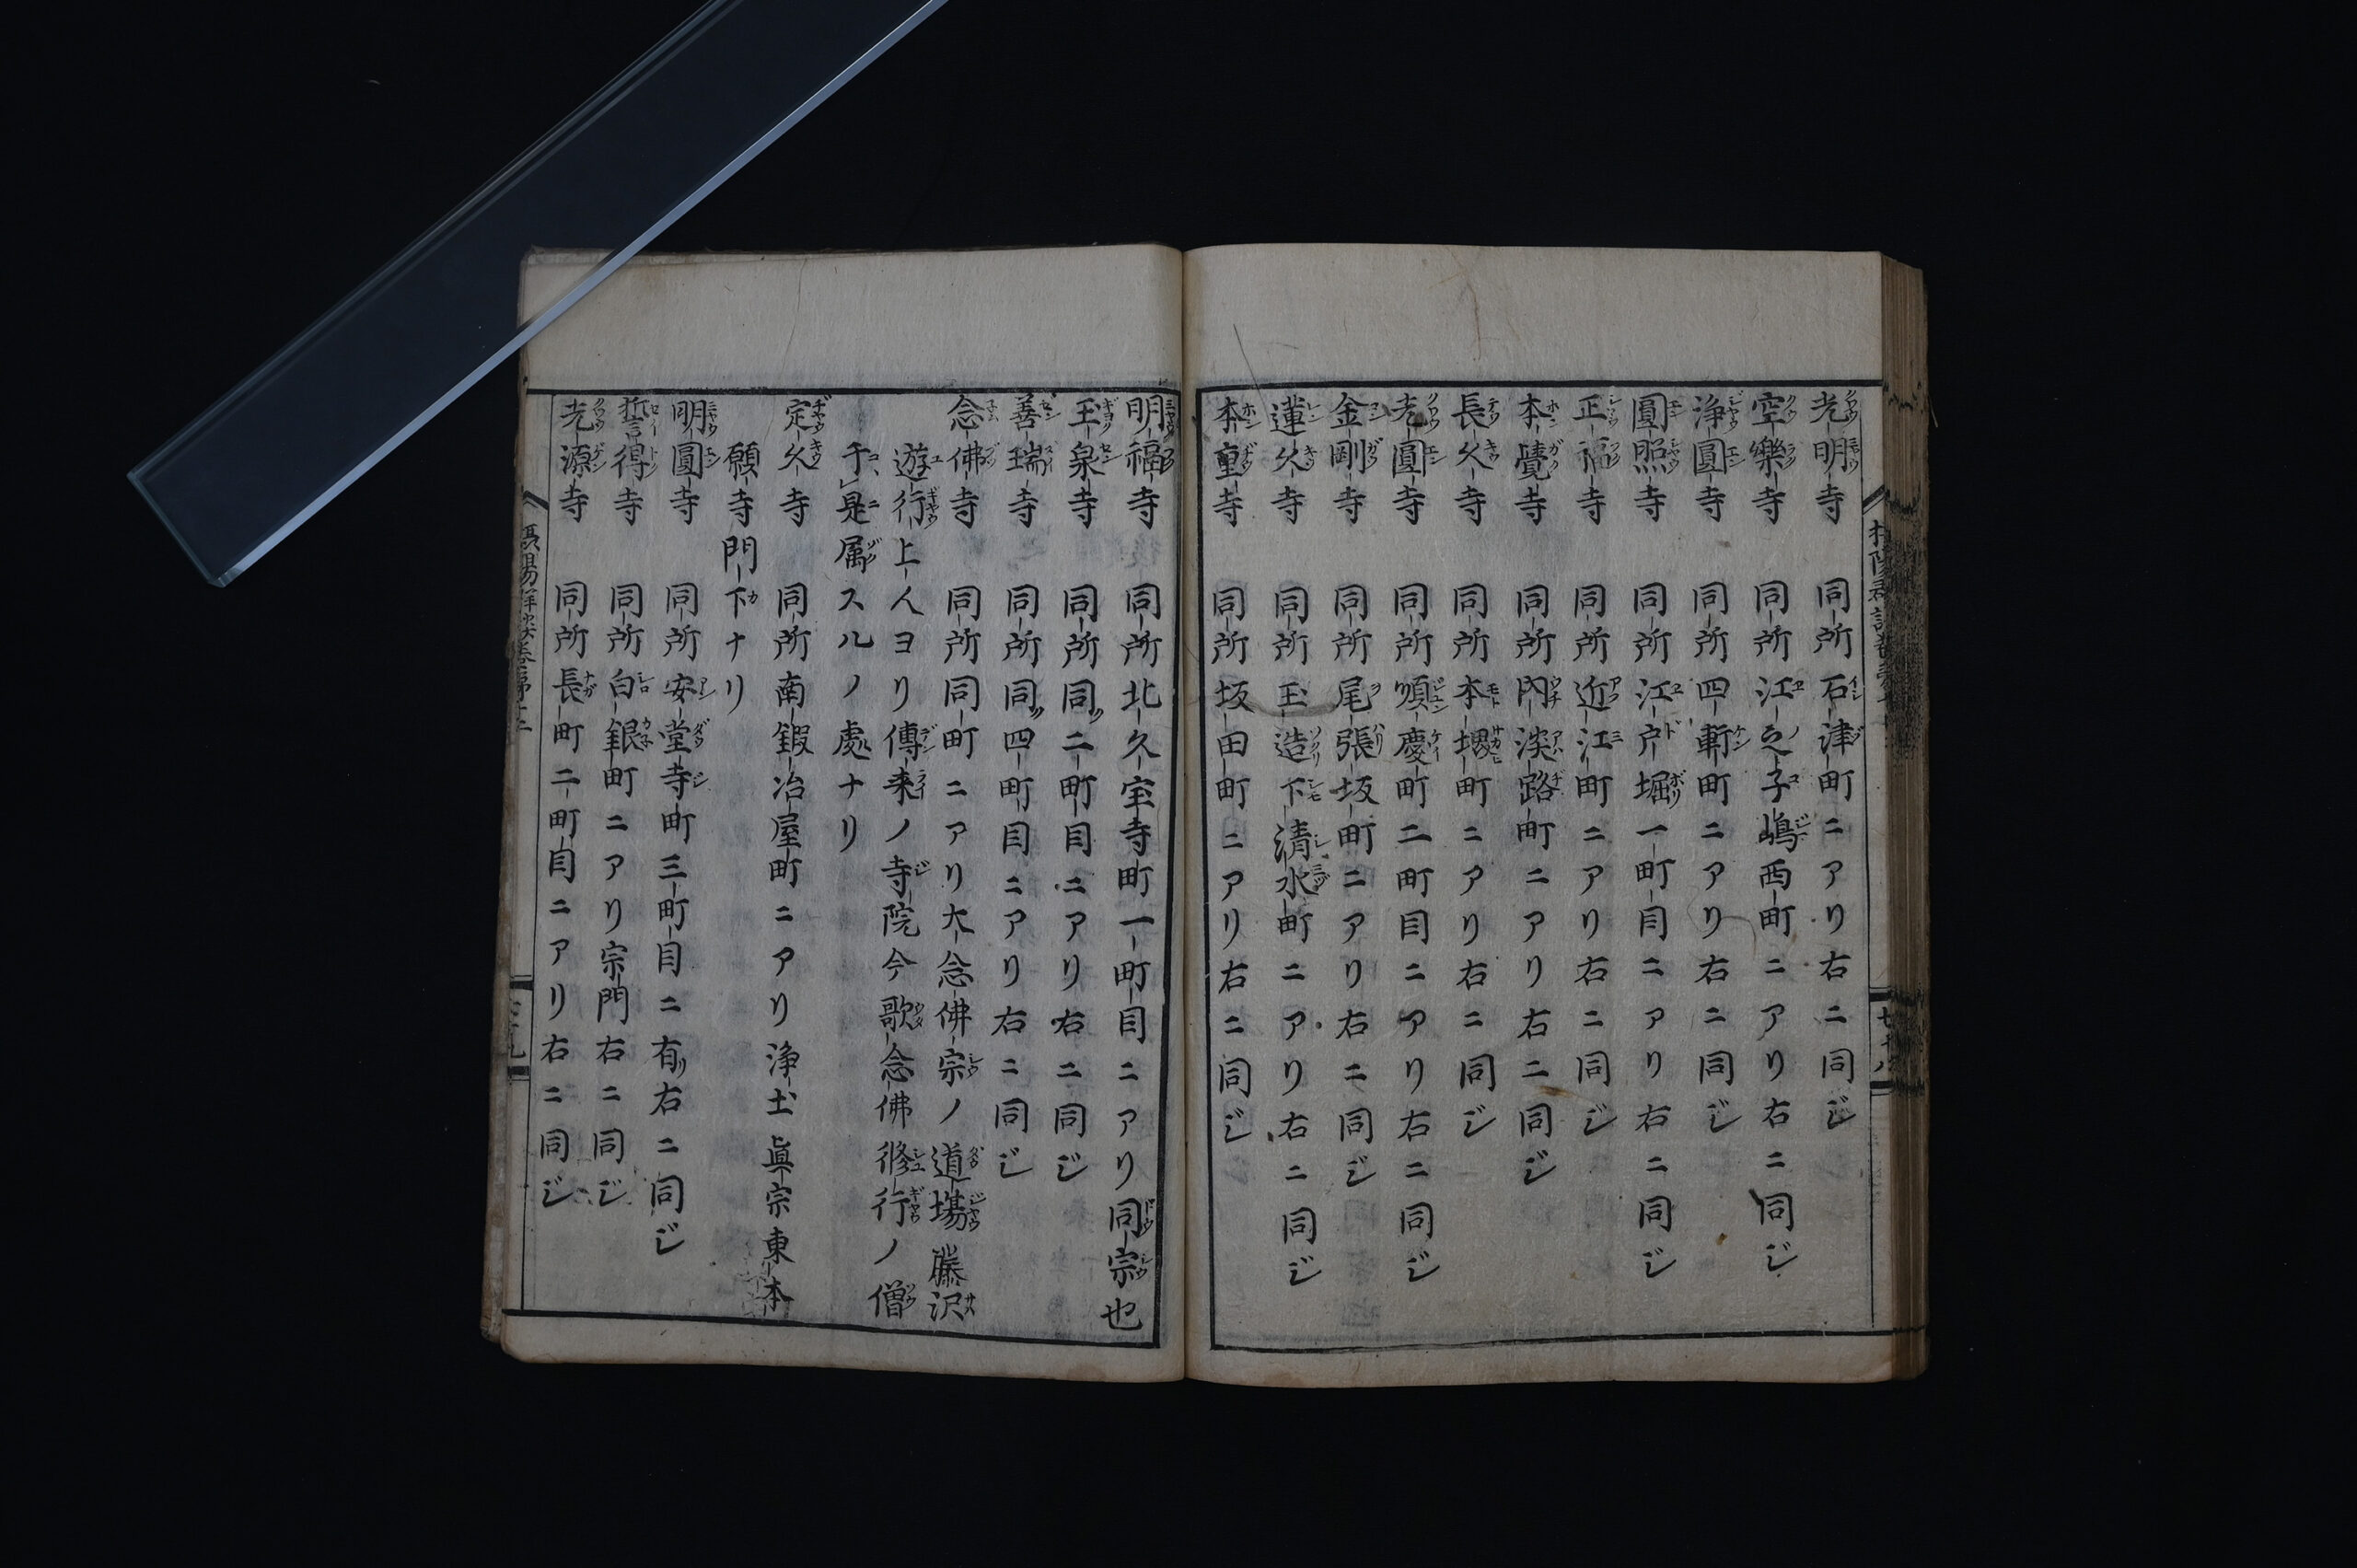 光明寺 同所石津町ニアリ右ニ同じ
空樂寺 同所江之子嶋西町ニアリ右ニ同じ
浄圓寺 同所四軒町ニアリ右ニ同じ
圓照寺 同所江戸堀一町目ニアリ右ニ同じ
正福寺 同所近江町ニアリ右ニ同じ
本覺寺 同所内淡路町ニアリ右ニ同じ
長久寺 同所本堺町ニアリ右ニ同じ
光圓寺 同所順慶町二町目ニアリ右ニ同じ
金剛寺 同所尾張坂町ニアリ右ニ同じ
蓮久寺 同所玉造下清水町ニアリ右ニ同じ
本重寺 同所坂田町ニアリ右ニ同じ
明福寺 同所北久宝寺町一町目ニアリ同宗也
玉泉寺 同所同二町目ニアリ右ニ同じ
善瑞寺 同所同四町目ニアリ右ニ同じ
念佛寺 同所同町ニアリ大念佛宗ノ道場藤沢
遊行上人ヨリ傳来ノ寺院今歌念佛修行ノ僧
于是属スルノ處ナリ
定久寺 同所南鍜冶屋町ニアリ浄土眞宗東本
願寺門下ナリ
明圓寺 同所安堂寺町三町目ニ有右ニ同じ
誓得寺 同所白銀町ニアリ宗門右ニ同じ
光源寺 同所長町二町目ニアリ右ニ同じ